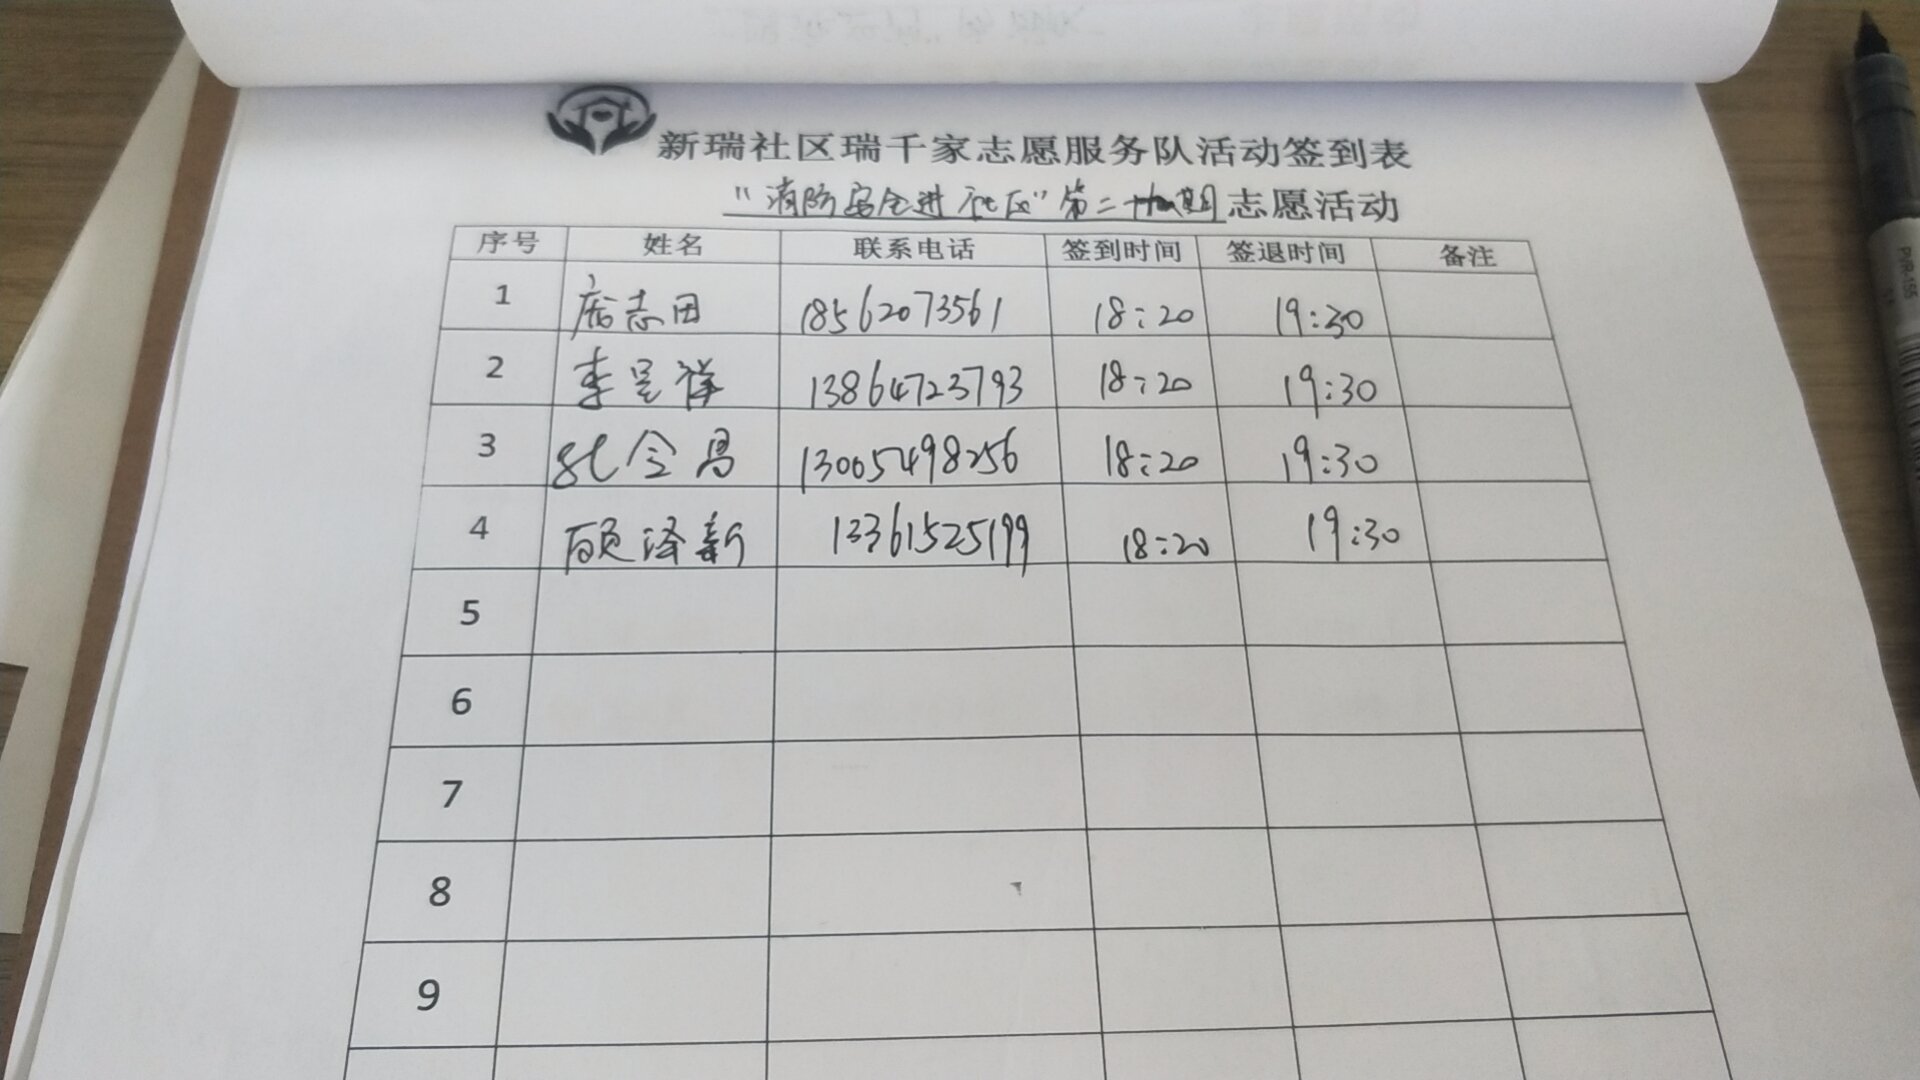 新瑞社区瑞千家志愿服务队活动签到表
"消防安全进社区"第二十期志愿活动
序号 姓名 联系电话 签到时间 签退时间 备注
1 志田 18562073561 18:20 19:30
2 李昱祥 13864723793 18:20 19:30
3 令昌 13005498256 18:20 19:30
4 顾泽新 13361525199 18:20 19:30
5
6
7
8
9